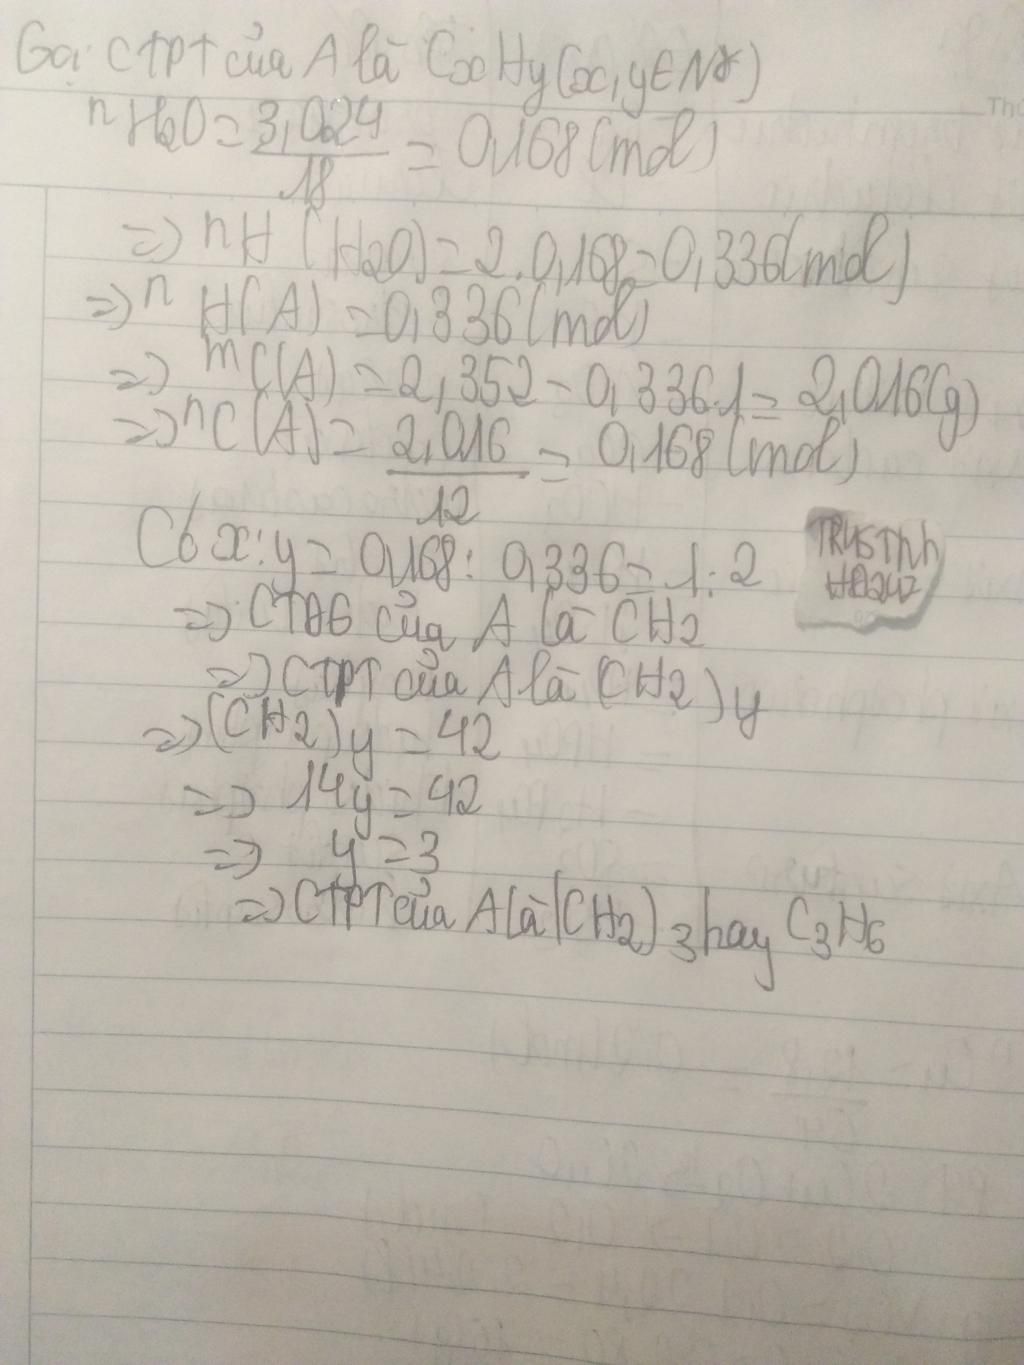 Gọi CTPT của A là CxHy(x,y∈N*)
nH2O=3,024/18=0,168(mol)
=> nH (H2O)=2.0,168=0,336(mol)
=> nH(A)=0,336(mol)
=> mC(A)=2,352-0,336.1=2,016(g)
=> nC(A)=2,016/12=0,168(mol)
Có x:y=0,168:0,336=1:2
TRUSTnh
=> CTĐG của A là CH2
=> CTPT của A là (CH2)y
=> (CH2)y=42
=> 14y=42
=> y=3
=> CTPT của A là (CH2)3 hay C3H6